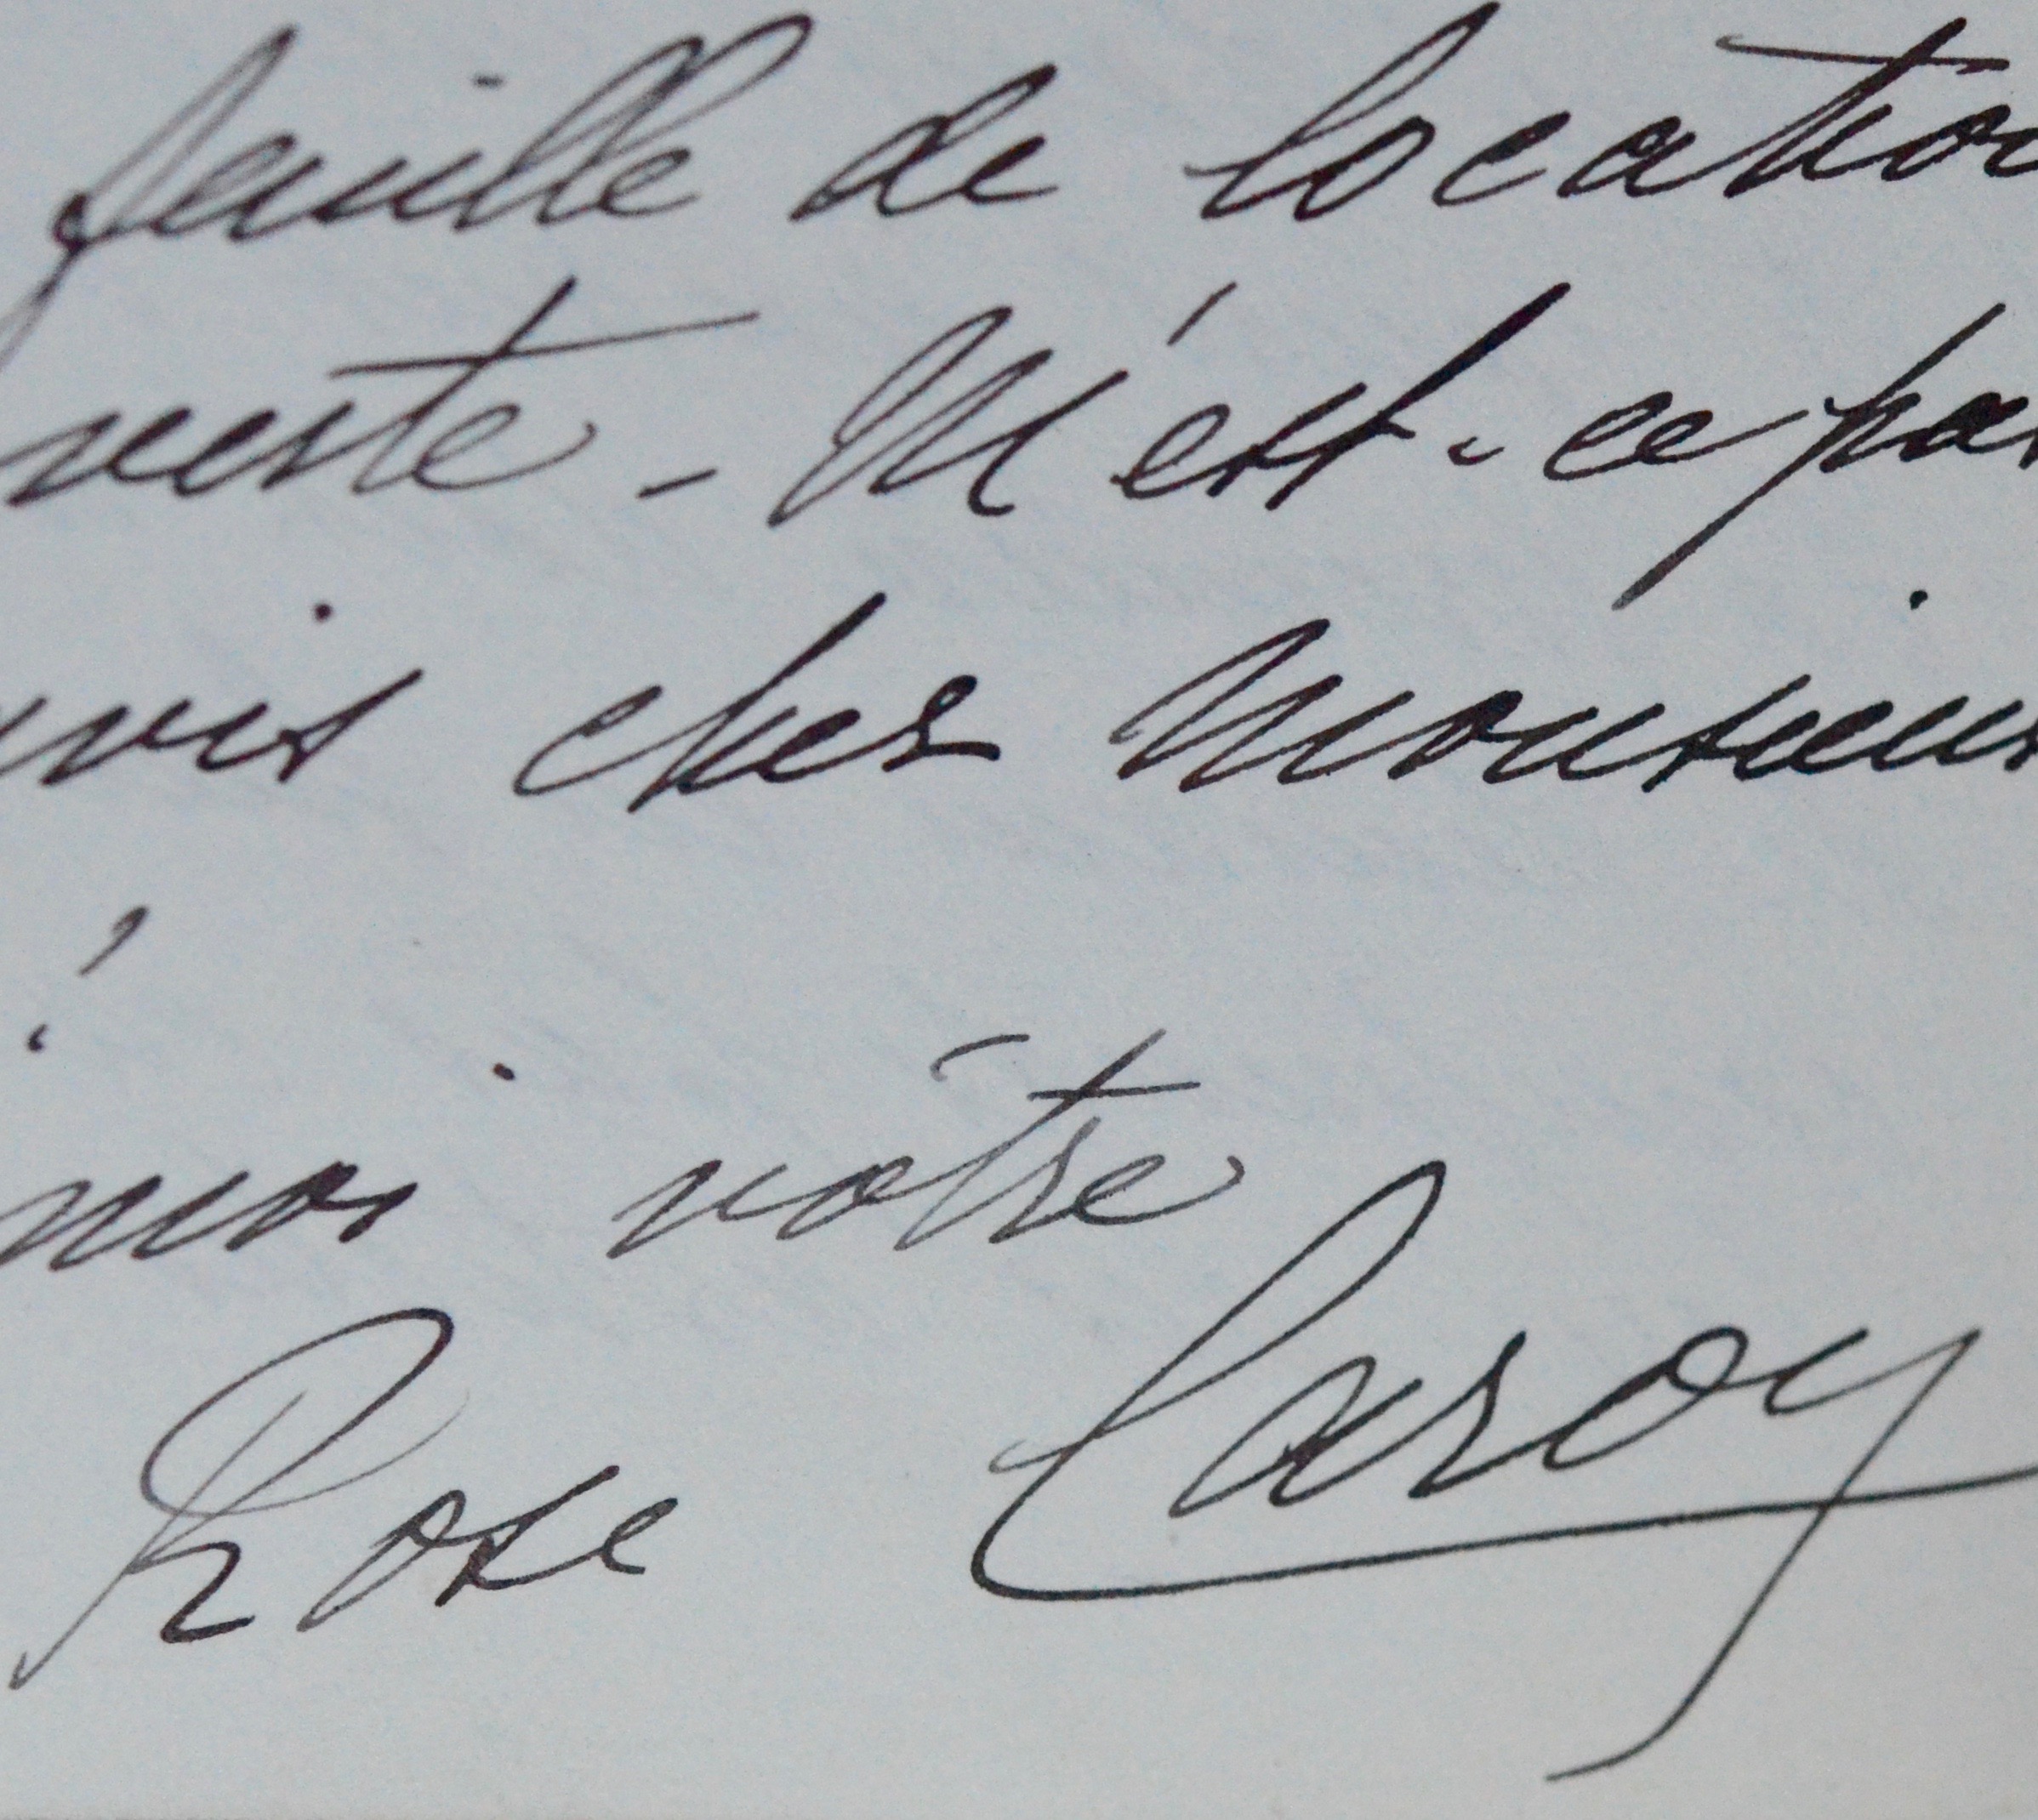 feuille de location
reste - N'est-ce pas
avis cher Monsieur
!
moi vôtre
Rose Caron